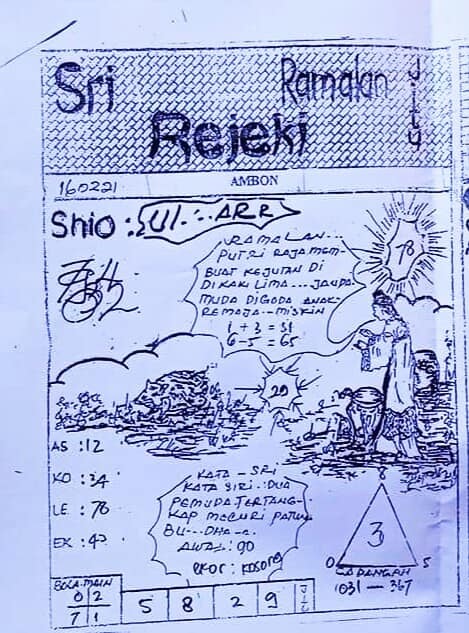 Sri
Ramalan
Jitu
Rejeki
160221
AMBON
Shio : UL.·.ARR
RAMALAN...
PUTRI RAJA MEM-
BUAT KEJUTAN DI
DIKAKI LIMA....JANDA
MUDA DIGODA ANAK-
REMAJA...MISKIN
1 + 3 = 31
6 - 5 = 65
78
29
AS : 12
KO : 34
LE : 78
EK : 43
KATA - SRI
KATA SIRI : DUA
PEMUDA TERTANG-
KAP MENCURI PATUNG
BU...DHA-a.
AWAL : 90
EKOR : KOSONG
8
3
0 5
CADANGAN
1031 — 367
BOLA MAIN
0 2
7 1
5 8 2 9
JITU